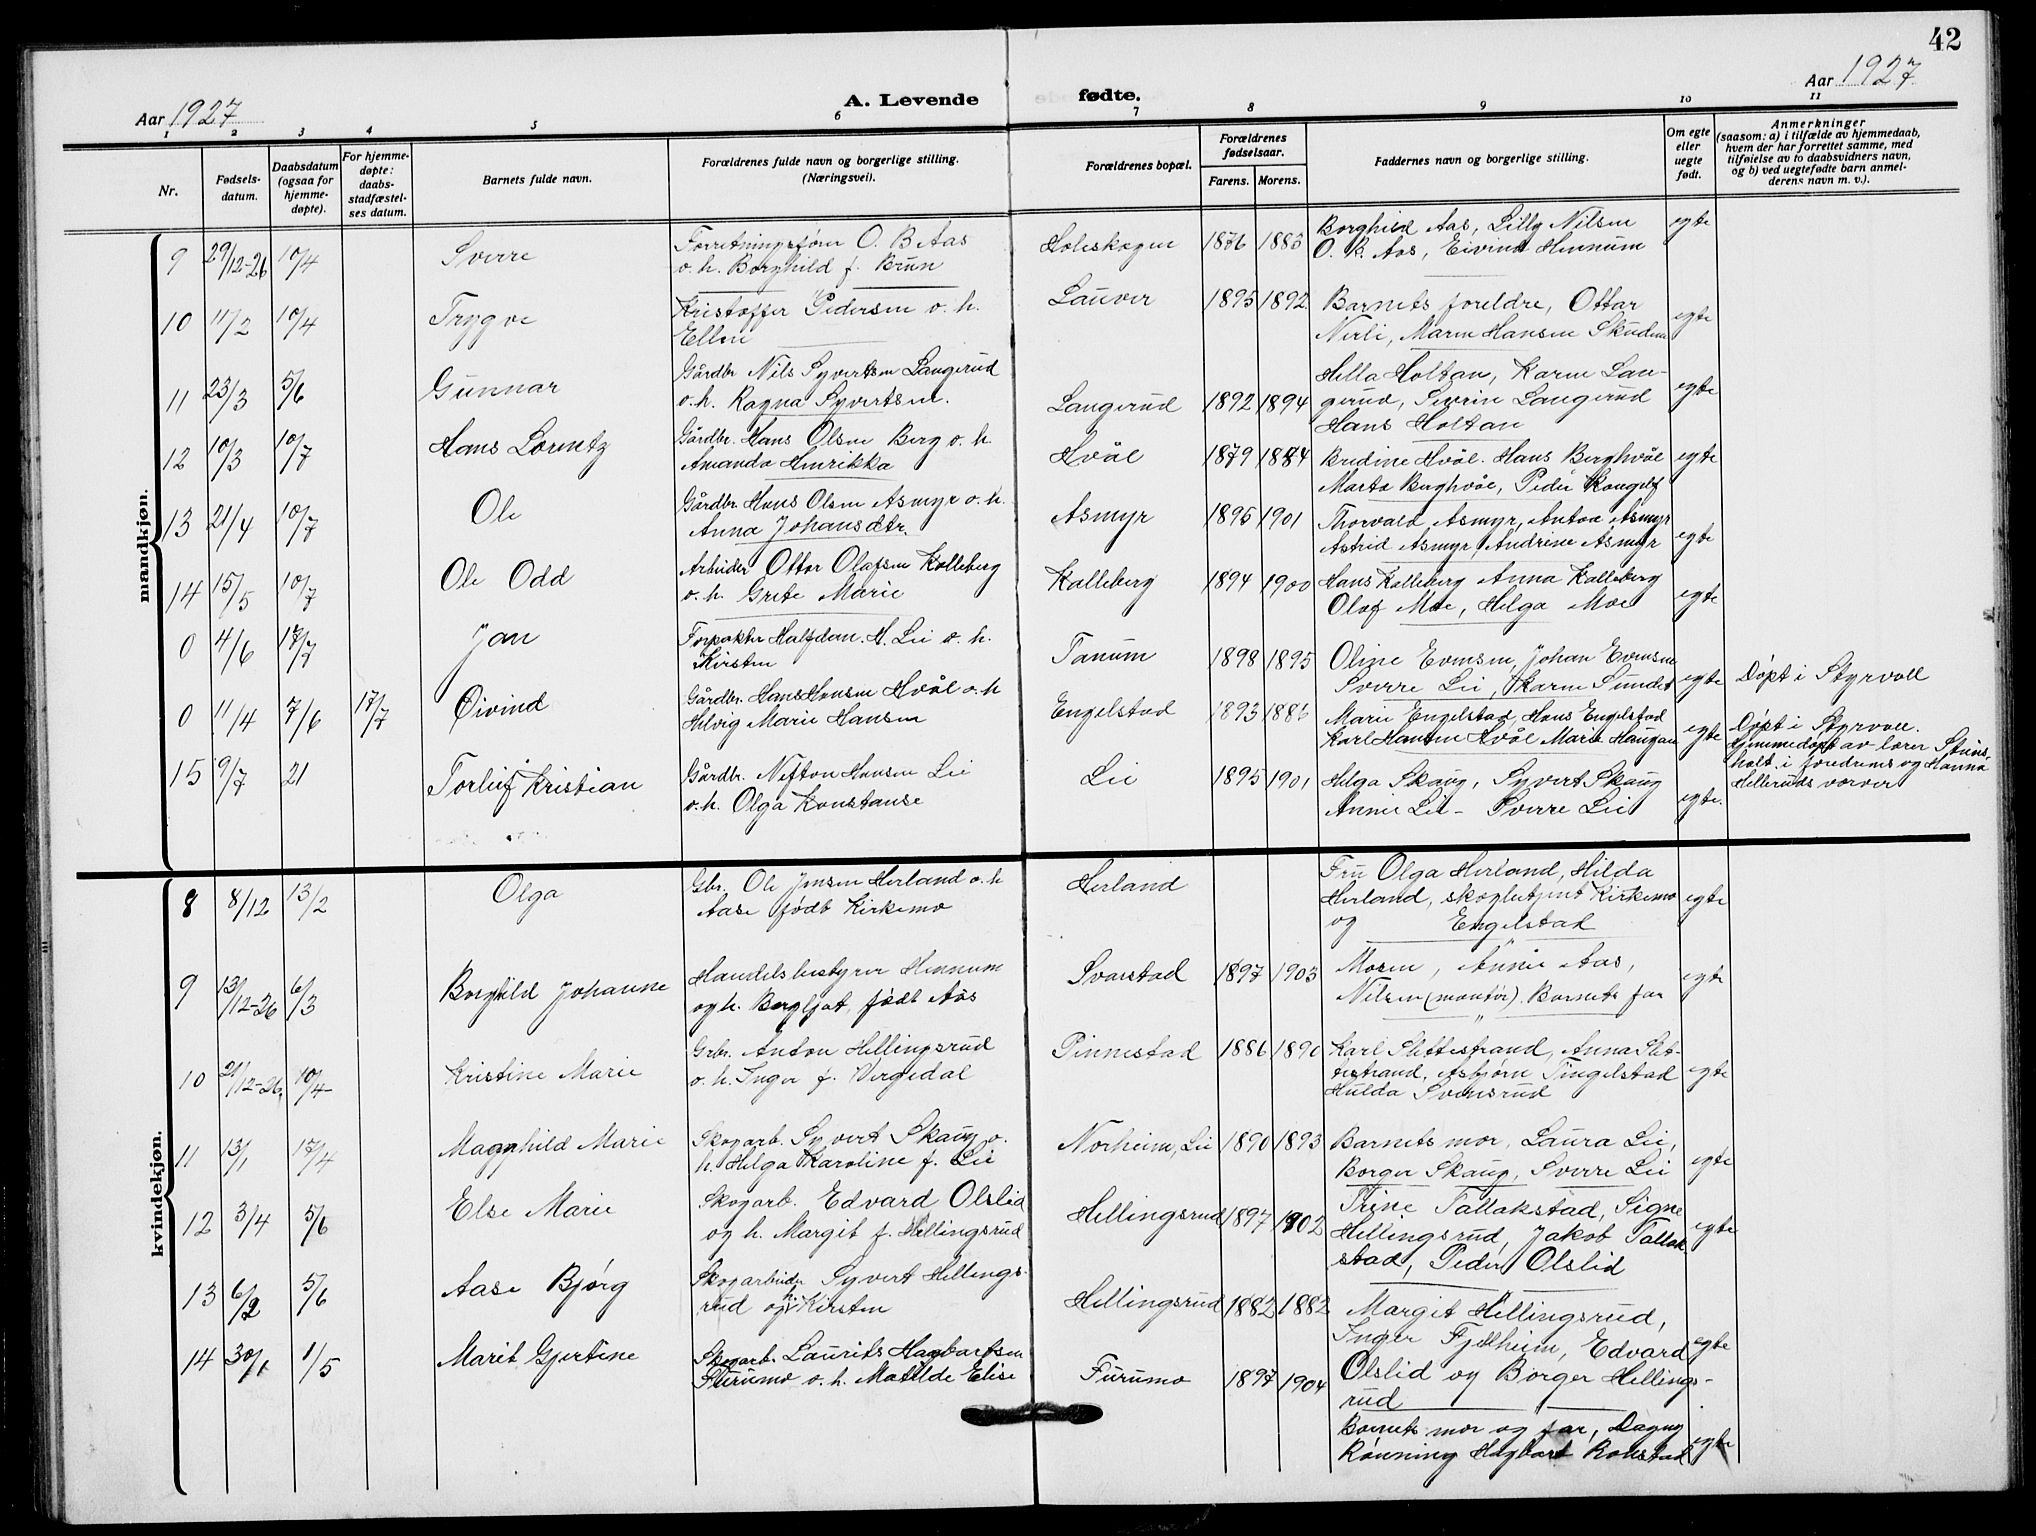 42
Aar 1927
A. Levende fødte.
Aar 1927
1 2 3 4 5 6 7 8 9 10 11
Nr.
Fødsels-
datum.
Daabsdatum
(ogsaa for
hjemme-
døpte).
For hjemme-
døpte:
daabs-
stadfæstel-
ses datum.
Barnets fulde navn.
Forældrenes fulde navn og borgerlige stilling.
(Næringsvei).
Forældrenes bopæl.
Forældrenes
fødselsaar.
Farens. Morens.
Faddernes navn og borgerlige stilling.
Om egte
eller
uegte
født.
Anmerkninger
(saasom: a) i tilfælde av hjemmedaab,
hvem der har forrettet samme, med
tilføielse av to daabsvidners navn,
og b) ved uegtefødte barn anmel-
derens navn m. v.).
mandkjøn.
9 29/12-26 10/4 Sverre
Forretningsfører O. B Aas
o. h. Borghild f. Brun
Holeskogen 1876 1883
Borghild Aas, Lilly Nilsen
O. B. Aas, Eivind Hennum
egte
10 11/2 10/4 Trygve
Kristoffer Pedersen o. h.
Ellen
Lauver 1895 1892
Barnets foreldre, Ottar
Nirli, Maren Hansen Skuden
egte
11 23/3 5/6 Gunnar
Gårdbr Nils Syvertsen Langerud
o. h. Ragna Syvertsen.
Langerud 1892 1894
Hella Holtan, Karen Lan-
gerud, Severin Langerud
Hans Holtan
egte
12 10/3 10/7 Hans Lorentz
Gårdbr. Hans Olsen Berg o. h.
Amanda Henrikka
Hvål 1879 1884
Bredine Hvål. Hans Berghvål
Marta Berghvål, Peder Kongelf
egte
13 21/4 10/7 Ole
Gårdbr. Hans Olsen Asmyr o. h.
Anna Johansdtr.
Asmyr 1895 1901
Thorvald Asmyr, Anton Asmyr
Astrid Asmyr, Andrine Asmyr
egte
14 15/5 10/7 Ole Odd
Arbeider Ottar Olafsen Kalleberg
o. h. Grete Marie
Kalleberg 1894 1900
Hans Kalleberg Anna Kalleberg
Olaf Moe, Helga Moe
egte
0 4/6 17/7 Jan
Forpakter Halfdan. H. Lie o. h.
Kirsten
Tanum 1898 1895
Oline Evensen, Johan Evensen
Sverre Lie, Karen Sundet
egte
Døpt i Styrvoll
0 11/4 7/6 17/7 Øivind
Gårdbr. Hans Hansen Hvål o. h
Helvig Marie Hansen
Engelstad 1893 1886
Marie Engelstad, Hans Engelstad
Karl Hansen Hvål Marie Haugan
egte
Døpt i Styrvoll.
Hjemmedøpt av lærer Stens-
holt i foreldrenes og Hanna
Hellerüds nærver
15 9/7 21 Torleif Kristian
Gårdbr. Nefton Hansen Lie
o. h. Olga Konstanse
Lie 1895 1901
Helga Skaug, Syvert Skaug
Annie Lie - Sverre Lie
egte.
kvindekjøn.
8 8/12 13/2 Olga
Gbr. Ole Jensen Herland o. h
Aase født Kirkemo
Herland
Fru Olga Herland, Hilda
Herland, skogbetjent Kirkemo
og Engelstad
egte
9 13/12-26 6/3 Borghild Johanne
Handelsbestyrer Hennum
og h. Bergljot, født Aas
Svarstad 1897 1903
Moren, Annie Aas,
Nilsen (montør) Barnets far
egte
10 21/12-26. 10/4- Kristine Marie
Grbr. Anton Hellingsrud
o. h. Inger f. Vergedal
Pinnestad 1886 1890
Karl Slettestrand, Anna Slet-
testrand, Asbjørn Tingelstad
Hulda Svensrud
egte
11 13/1 17/4 Magnhild Marie
Skogarb. Syvert Skaug o.
h. Helga Karoline f. Lie
Norheim, Lie 1890 1893
Barnets mor, Laura Lie,
Borger Skaug, Sverre Lie
egte
12 3/4 5/6 Else Marie
Skogarb. Edvard Olslid
og h. Margit f. Hellingsrud
Hellingsrud 1897 1902
Trine Tallakstad, Signe
Hellingsrud, Jakob Tallak
stad, Peder Olslid
egte
13 6/2 5/6 Aase Bjørg
Skogarbeider Syvert Hellings-
rud og h. Kirsten
Hellingsrud 1882 1882
Margit Hellingsrud,
Inger Fjellheim, Edvard
Olslid og Borger Hellings-
rud
egte
14 30/1 1/5 Marit Gjertine
Skogarb. Laurits Hagbartsen
Furumo o. h. Matilde Elise
Furumo 1897 1904
Barnets mor og far, Dagny
Rønning Hagbart Bonstad
egte